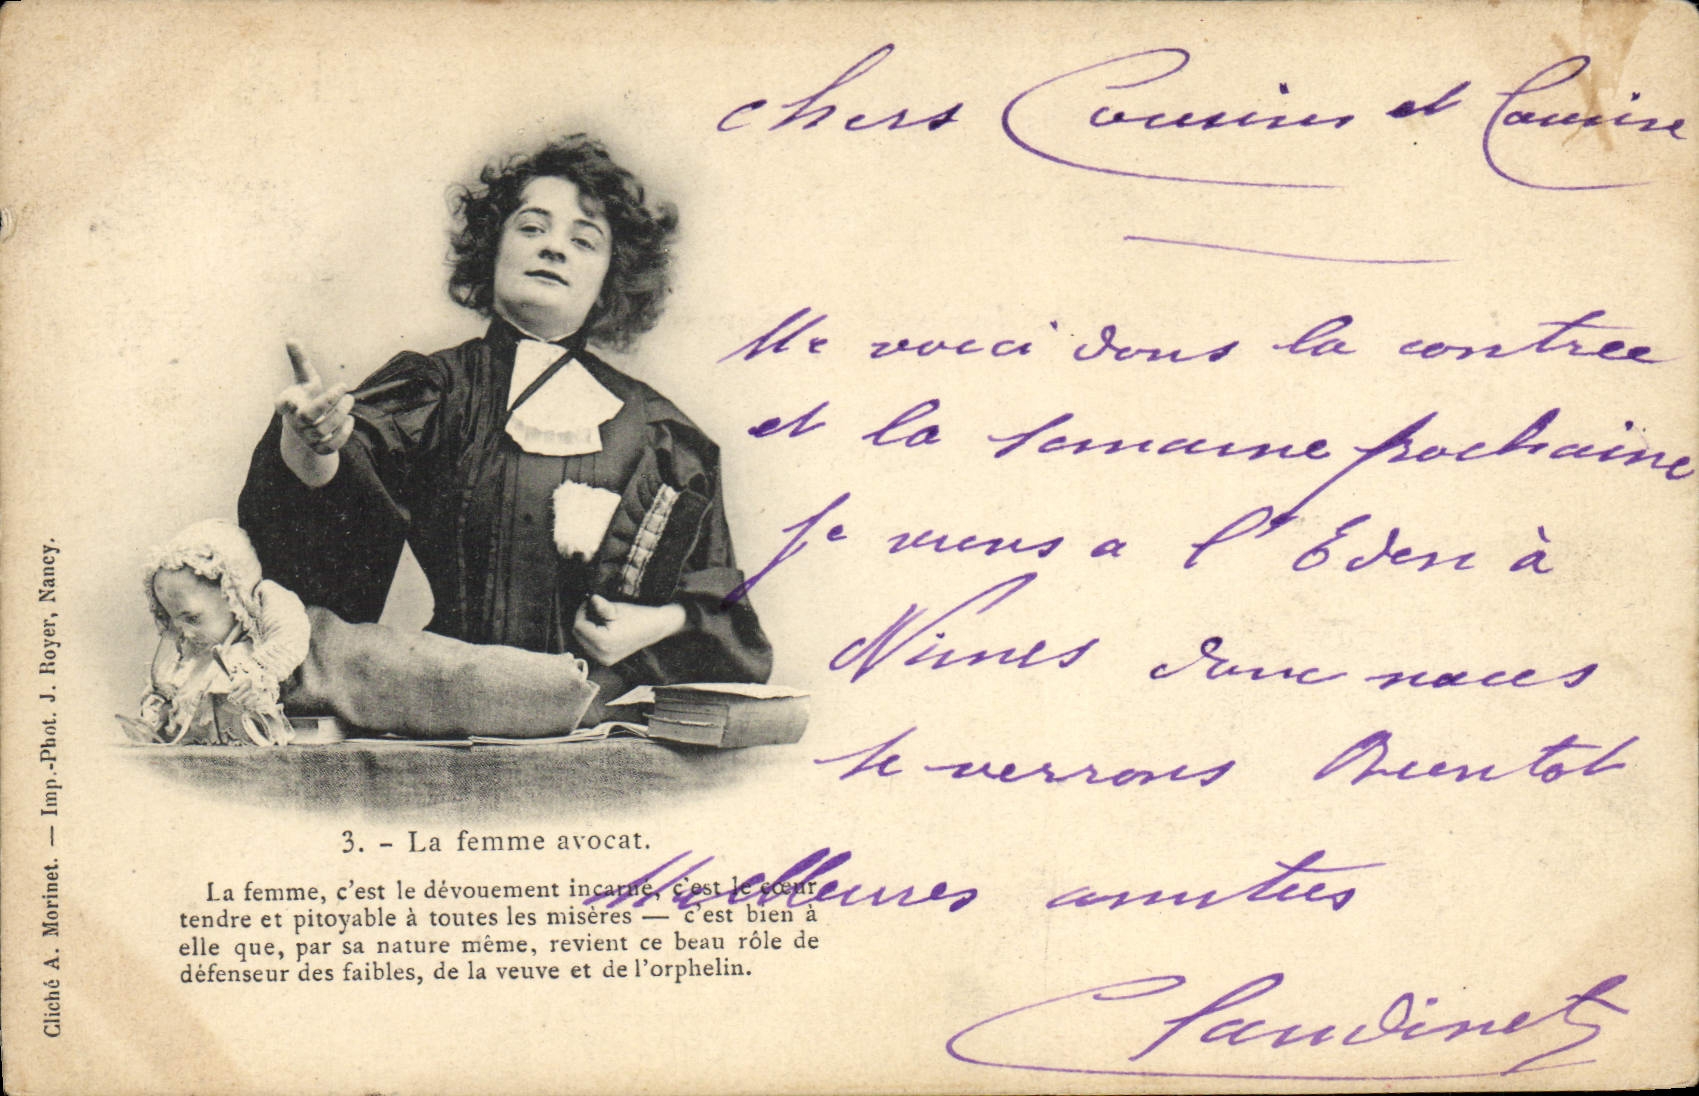 chers Cousins et Cousine
Me voici dans la contree
et la semaine prochaine
je viens a l'Eden à
Nimes donc nous
se verrons Bientot
Meilleures amities
Claudinet
3. – La femme avocat.
La femme, c'est le dévouement incarné, c'est le cœur
tendre et pitoyable à toutes les misères — c'est bien à
elle que, par sa nature même, revient ce beau rôle de
défenseur des faibles, de la veuve et de l'orphelin.
Cliché A. Morinet. — Imp.-Phot. J. Royer, Nancy.